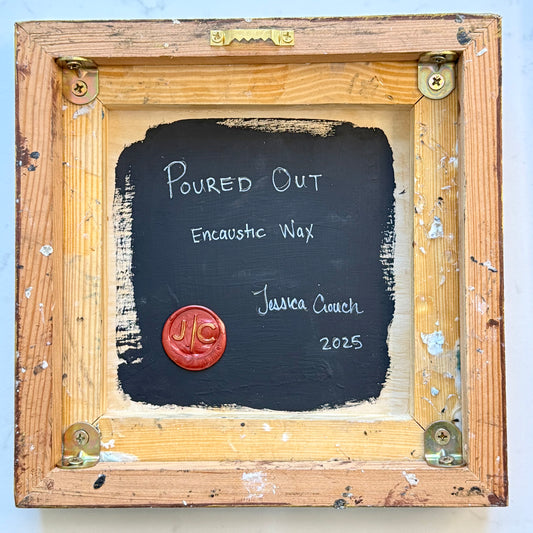 Poured Out
Encaustic Wax
Jessica Crouch
JC
2025